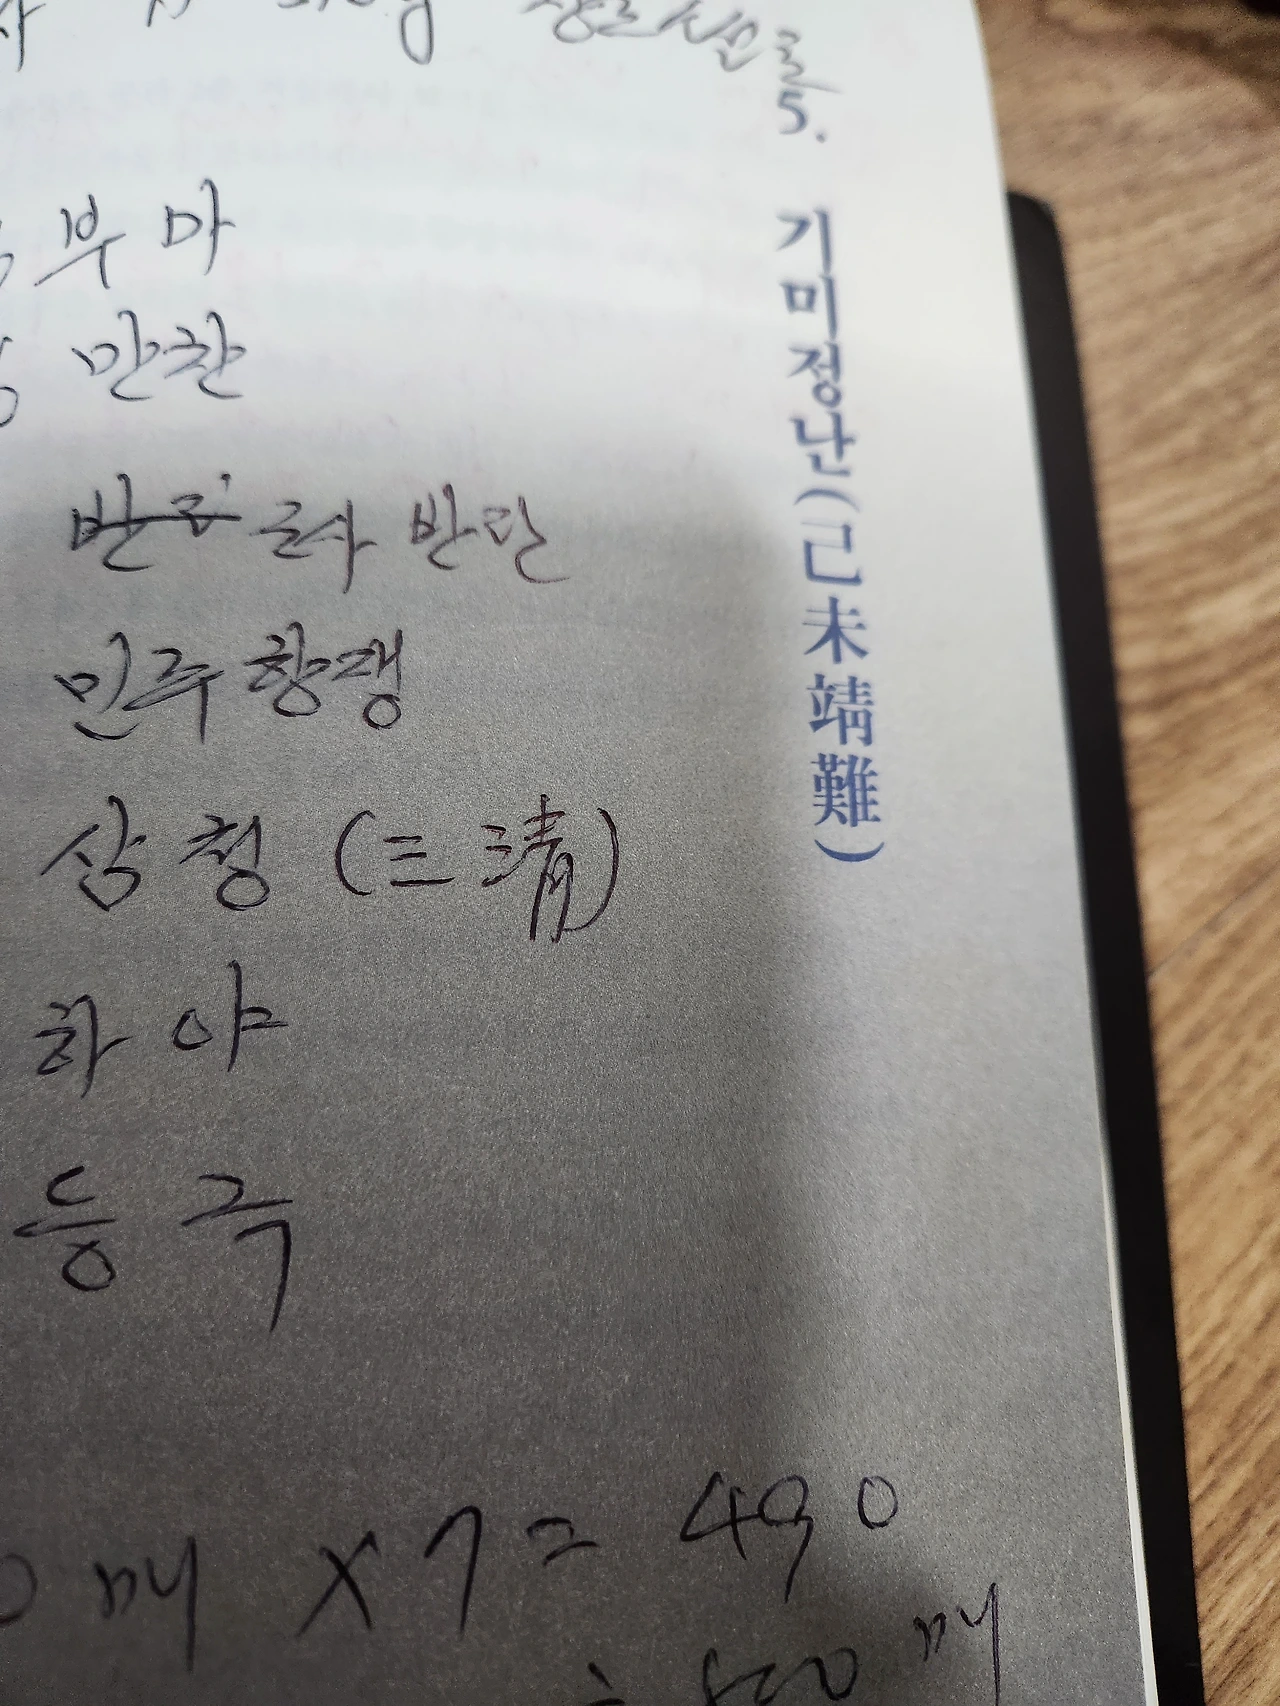 5. 기미정난(己未靖難)
부마
만찬
군사 반란
민주 항쟁
삼청 (三清)
하야
등극
매 x 7 = 490
500매